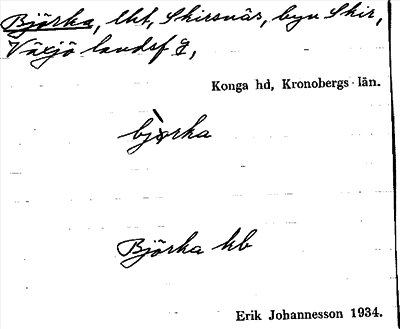 Björka, lht, Skirsnäs, byn Skir,
Växjö landsf g,
Konga hd, Kronobergs län.
bjòrka
Björka hb
Erik Johannesson 1934.